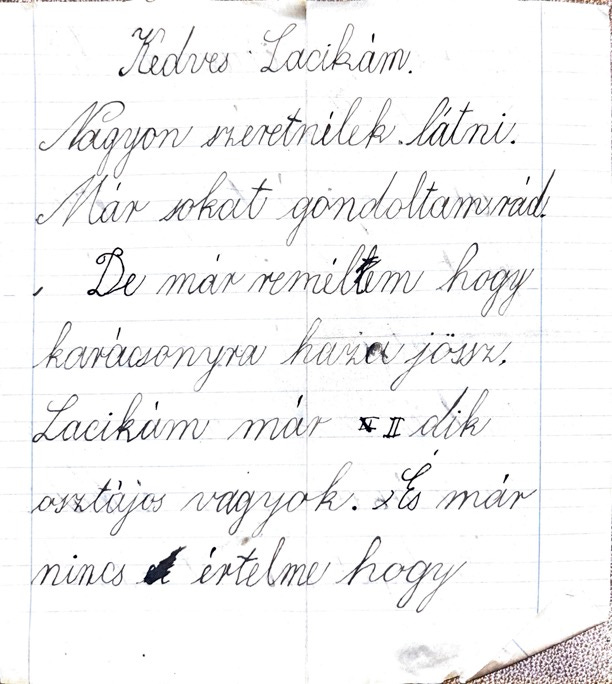 Kedves Lacikám.
Nagyon szeretnélek látni.
Már sokat gondoltam rád.
De már reméltem hogy
karácsonyra haza jössz.
Lacikám már II dik
osztájos vagyok. És már
nincs értelme hogy